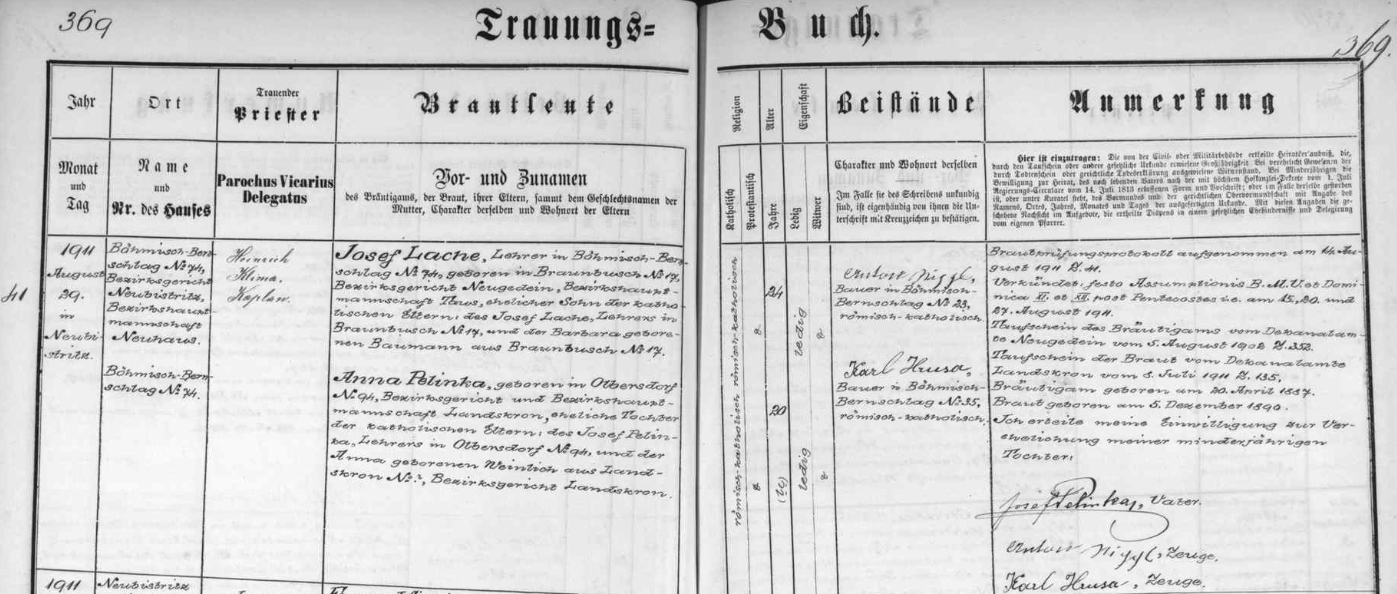 369
Trauungs=
Buch.
369.
Jahr
Ort
Trauender
Priester
Brautleute
Religion
Alter
Eigenschaft
Beistände
Anmerkung
Monat
und
Tag
Name
und
Nr. des Hauses
Parochus Vicarius
Delegatus
Vor- und Zunamen
des Bräutigams, der Braut, ihrer Eltern, sammt dem Geschlechtsnamen der
Mutter, Charakter derselben und Wohnort der Eltern
Katholisch
Protestantisch
Jahre
Ledig
Witwer
Charakter und Wohnort derselben
Im Falle sie des Schreibens unkundig
sind, ist eigenhändig von ihnen die Un-
terschrift mit Kreuzzeichen zu bestätigen.
Hier ist einzutragen: Die von der Civil- oder Militärbehörde ertheilte Heiratserlaubniß, die,
durch den Taufschein oder andere gesetzliche Urkunde erwiesene Großjährigkeit. Bei verehelicht Gewesenen der
durch Todtenschein oder gerichtliche Todeserklärung ausgewiesene Witwenstand. Bei Minderjährigen die
Bewilligung zur Heirat, des noch lebenden Vaters nach der mit höchsten Hofkanzlei-Dekrete vom 1. Juli
Regierungs-Circulär vom 14. Juli 1813 erlassenen Form und Vorschrift; oder im Falle derselbe gestorben
ist, oder unter Kuratel steht, des Vormundes und der gerichtlichen Obervormundschaft mit Angabe des
Namens, Ortes, Jahres, Monates und Tages der ausgefertigten Urkunde. Mit diesen Angaben die ge-
schehene Nachsicht im Aufgebote, die ertheilte Dispens in einem gesetzlichen Ehehindernisse und Delegierung
vom eigenen Pfarrer.
41
1911
August
29.
in
Neubi-
stritz.
Böhmisch-Bern-
schlag No 74,
Bezirksgericht
Neubistritz,
Bezirkshaupt-
mannschaft
Neuhaus.
Böhmisch-Bern-
schlag No 74.
Heinrich
Klima.
Kaplan.
Josef Lache, Lehrer in Böhmisch-Bern-
schlag No 74, geboren in Braunbusch No 17,
Bezirksgericht Neugedein, Bezirkshaupt-
mannschaft Taus, ehelicher Sohn der katho-
lischen Eltern: des Josef Lache, Lehrers in
Braunbusch No 17, und der Barbara gebore-
nen Baumann aus Braunbusch No 17.
Anna Pelinka, geboren in Olbersdorf
No 94, Bezirksgericht und Bezirkshaupt-
mannschaft Landskron, eheliche Tochter
der katholischen Eltern: des Josef Pelin-
ka, Lehrers in Olbersdorf No 94, und der
Anna geborenen Weinlich aus Land-
skron No ?, Bezirksgericht Landskron.
römisch-katholisch
römisch-katholisch
24
20
ledig
ledig
Anton Niggl,
Bauer in Böhmisch-
Bernschlag No 23,
römisch-katholisch.
Karl Hrusa,
Bauer in Böhmisch-
Bernschlag No 35,
römisch-katholisch.
Brautprüfungsprotokoll aufgenommen am 14. Au-
gust 1911 Z. 41.
Verkündet: festo Assumptionis B. M. V. et Domi-
nica XI. et XII. post Pentecostes i.e. am 15., 20. und
27. August 1911.
Taufschein des Bräutigams vom Dekanalam-
te Neugedein vom 5. August 1902 Z. 352.
Taufschein der Braut vom Dekanalamte
Landskron vom 8. Juli 1911 Z. 135.
Bräutigam geboren am 20. April 1887.
Braut geboren am 5. Dezember 1890.
Ich erteile meine Einwilligung zur Ver-
ehelichung meiner minderjährigen
Tochter:
Josef Pelinka, Vater.
Anton Niggl, Zeuge.
Karl Hrusa, Zeuge.
1911
Neubistritz